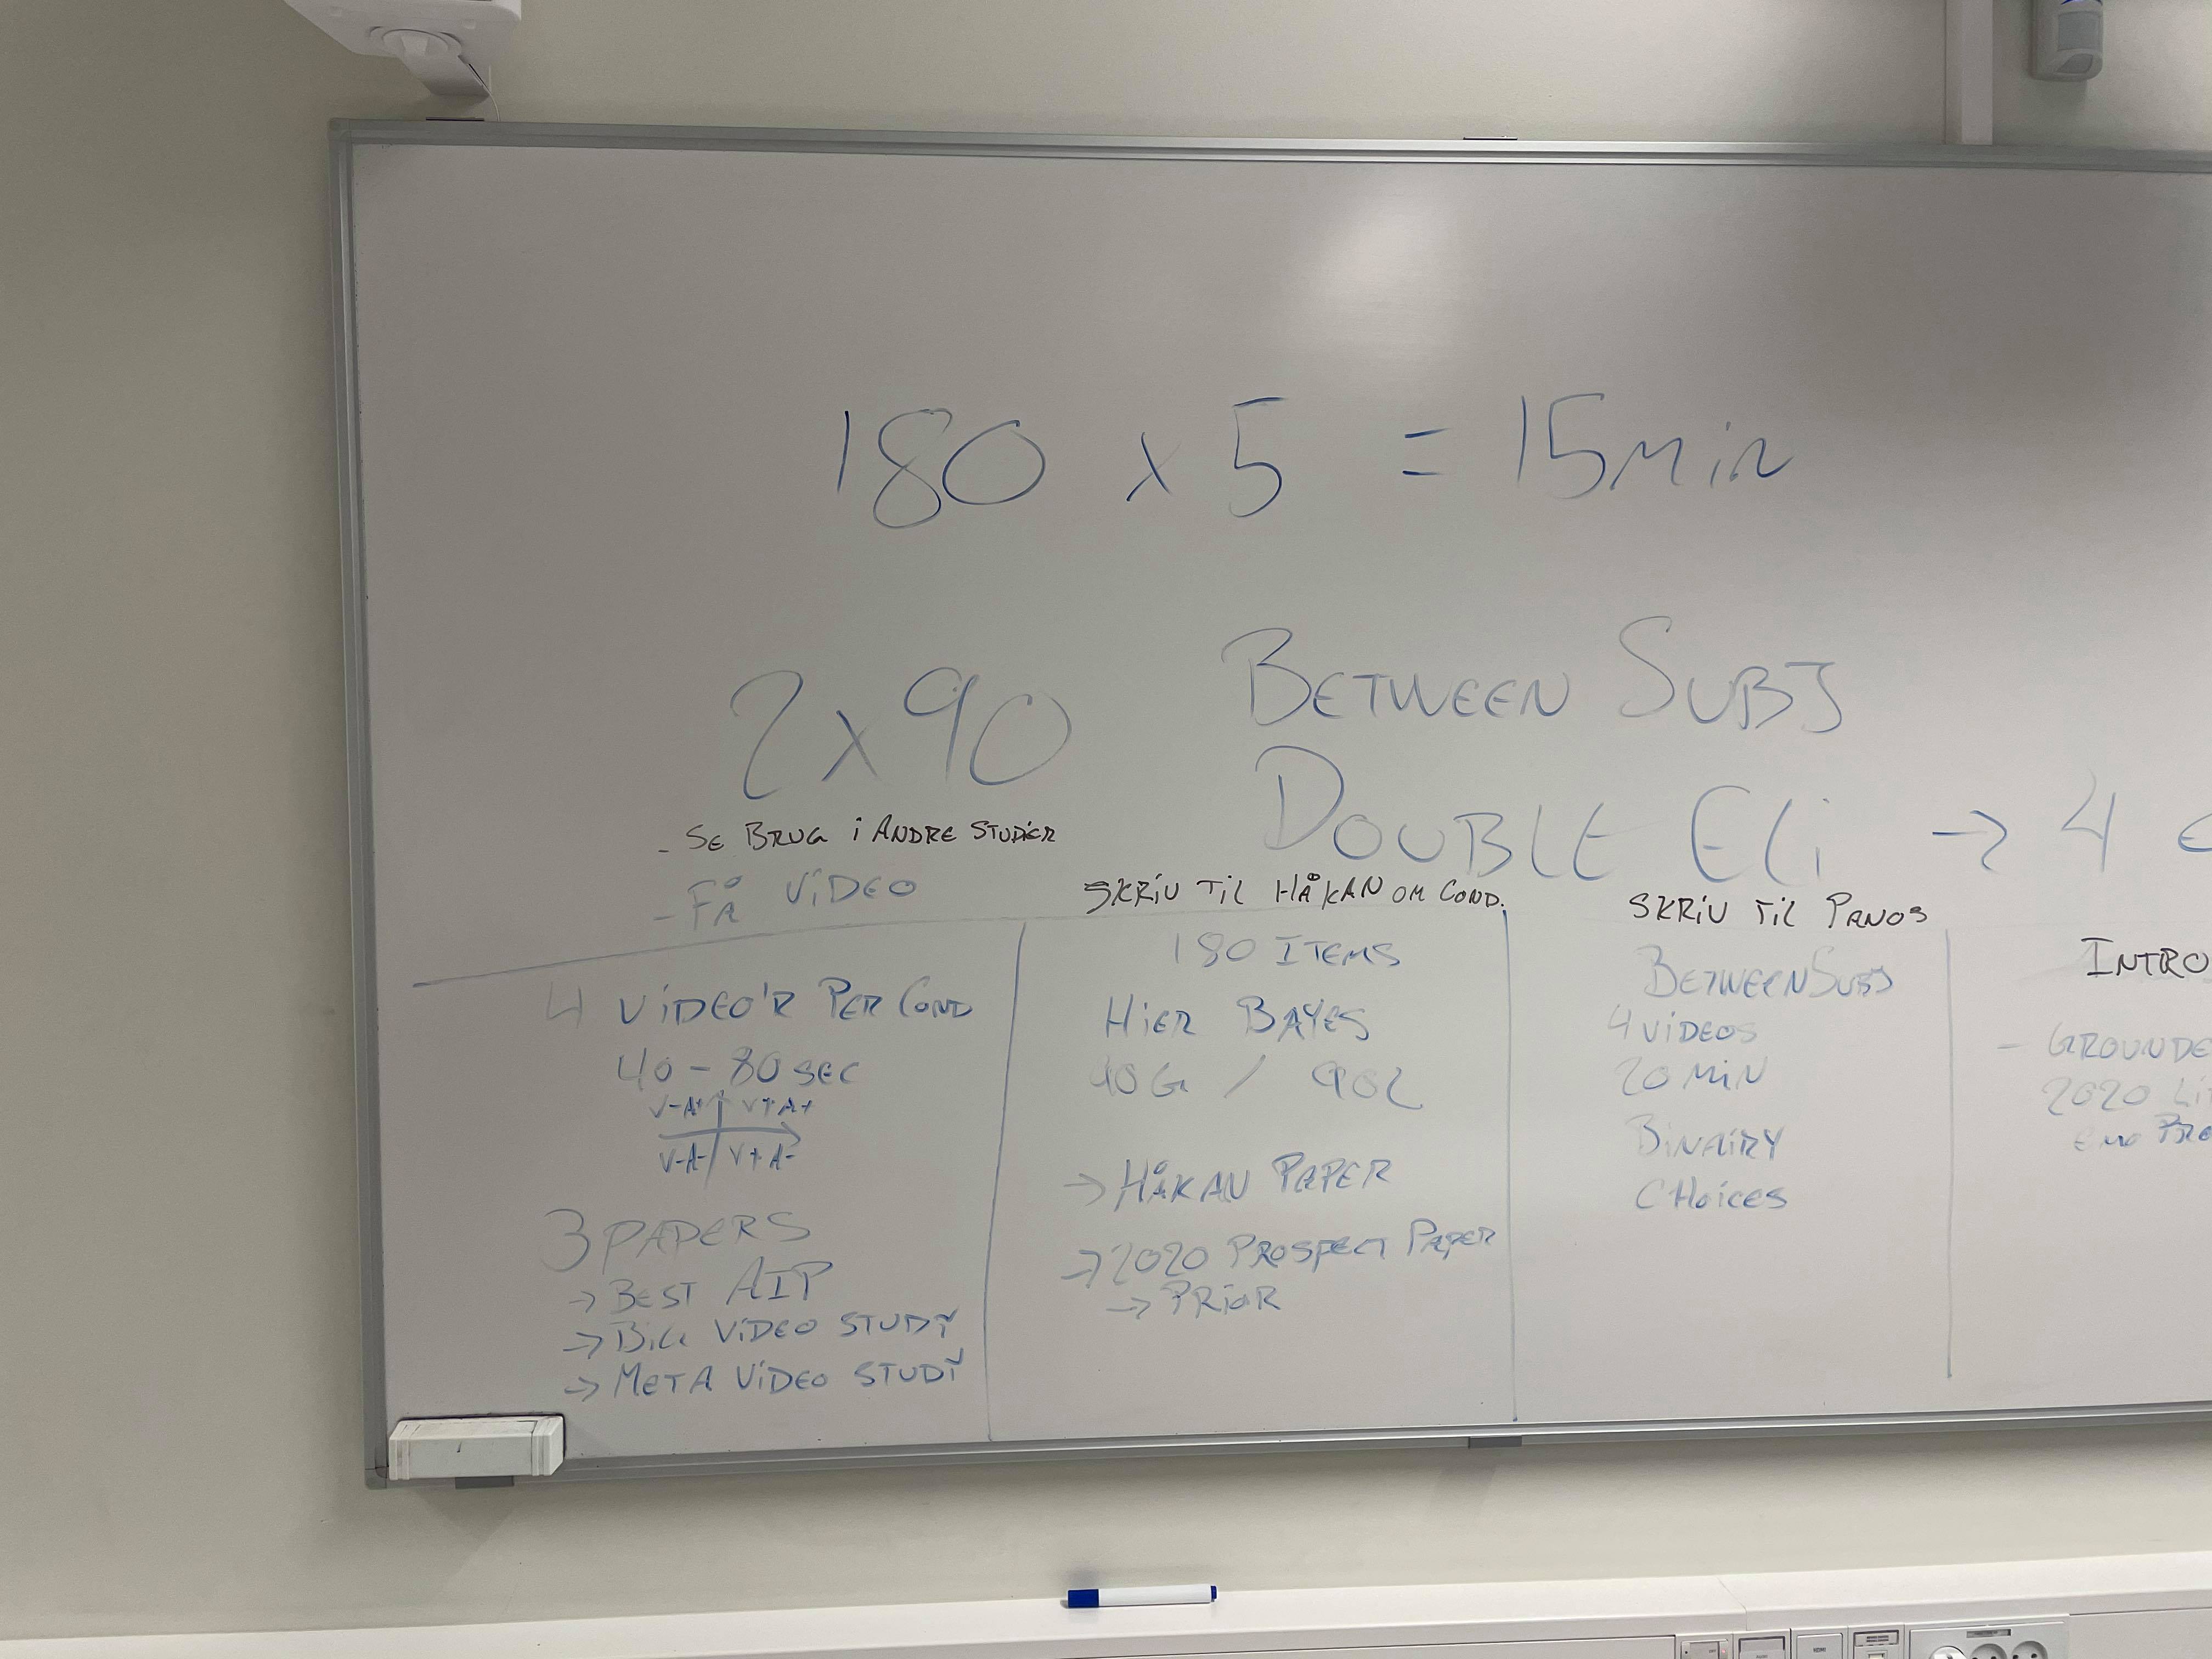 180 x 5 = 15 min
2 x 90
BETWEEN SUBJ
DOUBLE Eli → 4
- SE BRUG i ANDRE STUDiER
- FÅ ViDEO
4 ViDEO'R PER COND
40 - 80 SEC
V-A+ V+A+
V-A- V+A-
3 PAPERS
→ BEST AIP
→ BiG ViDEO STUDY
→ META ViDEO STUDY
SKRiV TiL HÅKAN OM COND.
180 ITEMS
HiER BAYES
/ 90L
→ HÅKAN PAPER
→ 2020 PROSPECT PAPER
→ PRiOR
SKRiV TiL PANOS
BETWEEN SUBJ
4 ViDEOS
20 MiN
BiNAiRY
CHOiCES
INTRO
- GROUNDE
2020 Li
EMO PRO